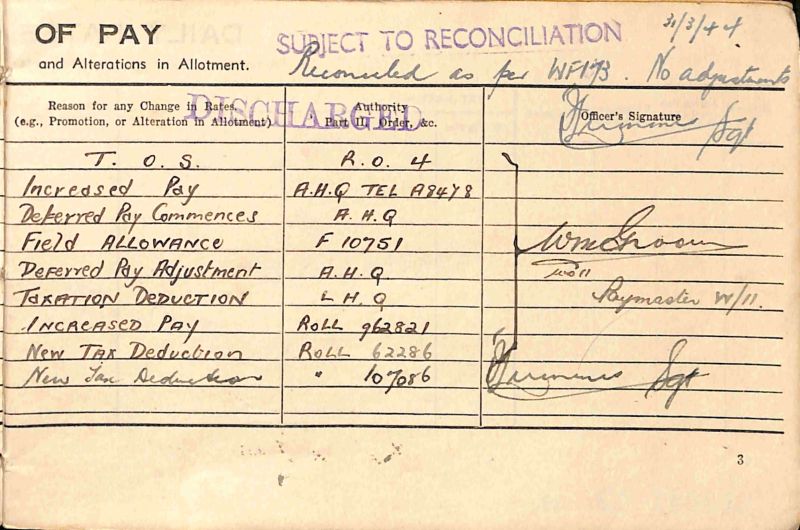 OF PAY
SUBJECT TO RECONCILIATION
31/3/44
and Alterations in Allotment.
Reconciled as per WF173. No adjustments
DISCHARGED
Reason for any Change in Rates. Authority Officer's Signature
(e.g., Promotion, or Alteration in Allotment) Part II. Order, &c.
Sgt
T. O. S. R.O. 4
Increased Pay A.H.Q TEL A8478
Deferred Pay Commences A.H.Q
Field ALLOWANCE F 10751
Deferred Pay Adjustment A.H.Q
TAXATION DEDUCTION L H.Q
Paymaster W/11.
INCREASED PAY ROLL 962821
New Tax Deduction ROLL 62286
New Tax Deduction " 107086 Sgt
3